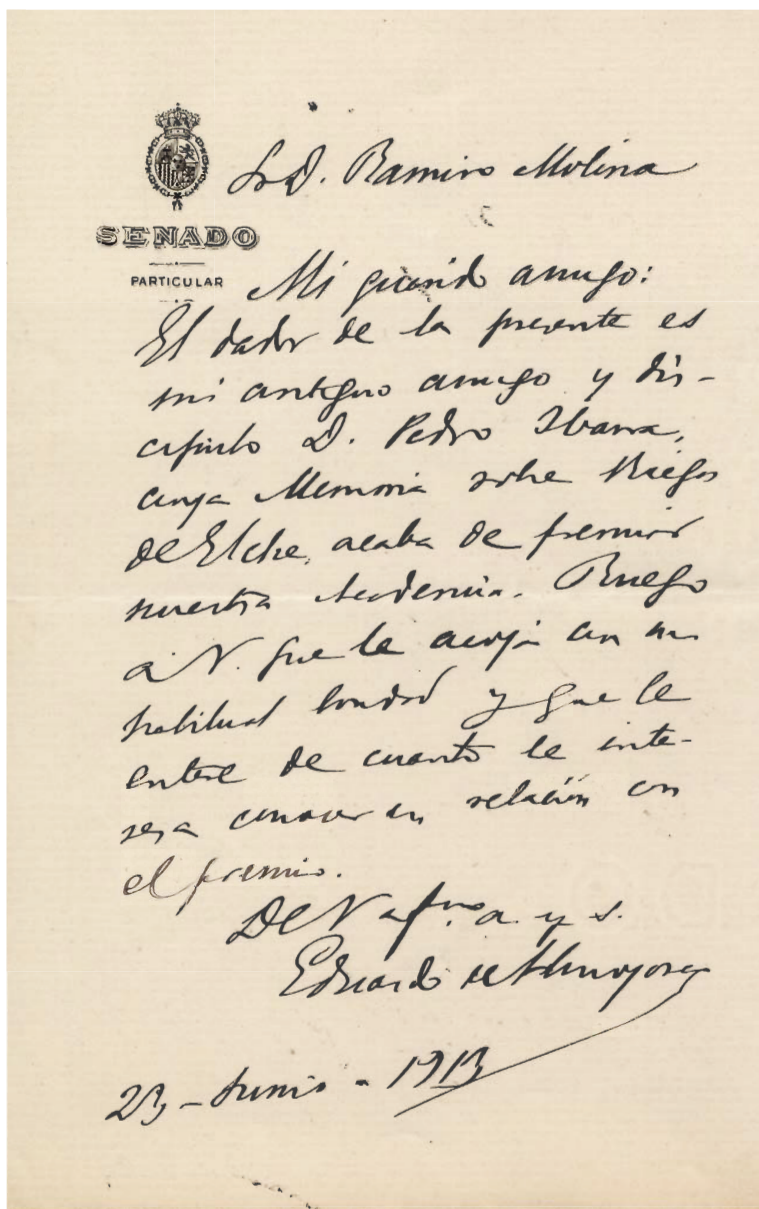 Sr D. Ramiro Molina
SENADO
PARTICULAR
Mi querido amigo:
El dador de la presente es
mi antiguo amigo y dis-
cipulo D. Pedro Ibarra,
cuya Memoria sobre Riegos
de Elche, acaba de premiar
nuestra Academia. Ruego
a V. que le acoja con su
habitual bondad y que le
entere de cuanto le inte-
resa conocer en relación con
el premio.
De V afmo. a. y s.
Eduardo de Hinojosa
23-Junio-1913